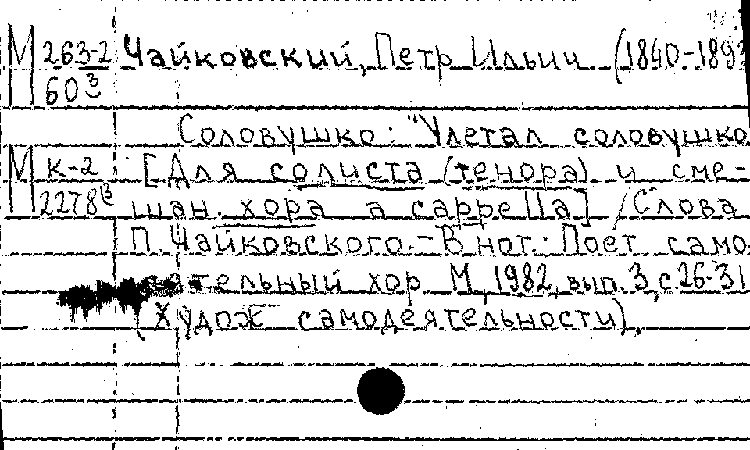 М 263-2 Чайковский, Петр Ильич (1840-189
60 3
Соловушко: "Улетал соловушко
М К-2 [Для солиста (тенора) и сме-
2278 шан. хора a cappella] / Слова
П. Чайковского.- В нот.: Поет само
ятельный хор М., 1982, вып. 3, с 26-31
(Худож самодеятельности).